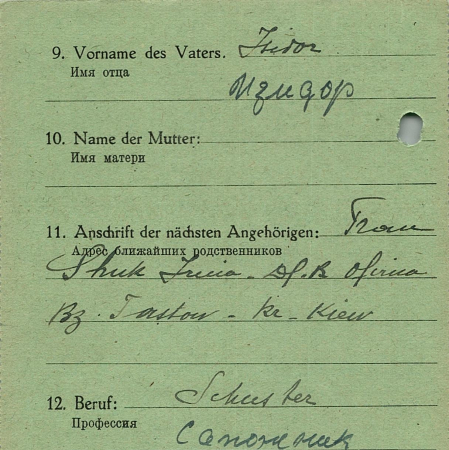 9. Vorname des Vaters. Isidor
Имя отца
Изидор
10. Name der Mutter:
Имя матери
11. Anschrift der nächsten Angehörigen: Frau
Адрес ближайших родственников
Shuk Irina - Df. B
Bz. Fastow - Kr - Kiew
12. Beruf: Schuster
Профессия
Сапожник